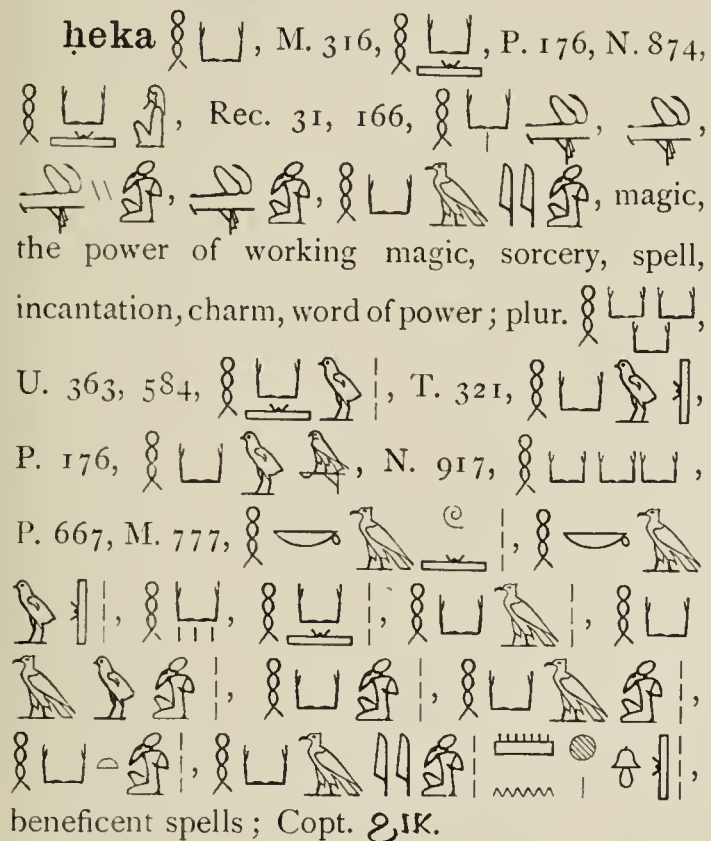 ḥeka 𓎛𓂓, M. 316, 𓎛𓂓𓏛, P. 176, N. 874,
𓎛𓂓𓏛𓀭, Rec. 31, 166, 𓎛𓂓𓏤
𓏭𓀁, 𓀁, 𓎛𓂓𓄿𓇋𓇋𓀁, magic,
the power of working magic, sorcery, spell,
incantation, charm, word of power; plur. 𓎛𓂓𓂓𓂓,
U. 363, 584, 𓎛𓂓𓏛𓅱𓏥, T. 321, 𓎛𓂓𓅱𓏛,
P. 176, 𓎛𓂓𓅱𓅆, N. 917, 𓎛𓂓𓂓𓂓,
P. 667, M. 777, 𓎛𓎡𓄿𓏲𓏛𓏥, 𓎛𓎡𓄿
𓅱𓏛𓏥, 𓎛𓂓𓏥, 𓎛𓂓𓏛𓏥, 𓎛𓂓𓄿𓏥, 𓎛𓂓
𓄿𓅱𓀁𓏥, 𓎛𓂓𓀁𓏥, 𓎛𓂓𓄿𓀁𓏥,
𓎛𓂓𓏏𓀁𓏥, 𓎛𓂓𓄿𓇋𓇋𓀁𓏥 𓏠𓈖𓐍𓏤𓍋𓏛𓏥,
beneficent spells; Copt. ϩⲓⲕ.